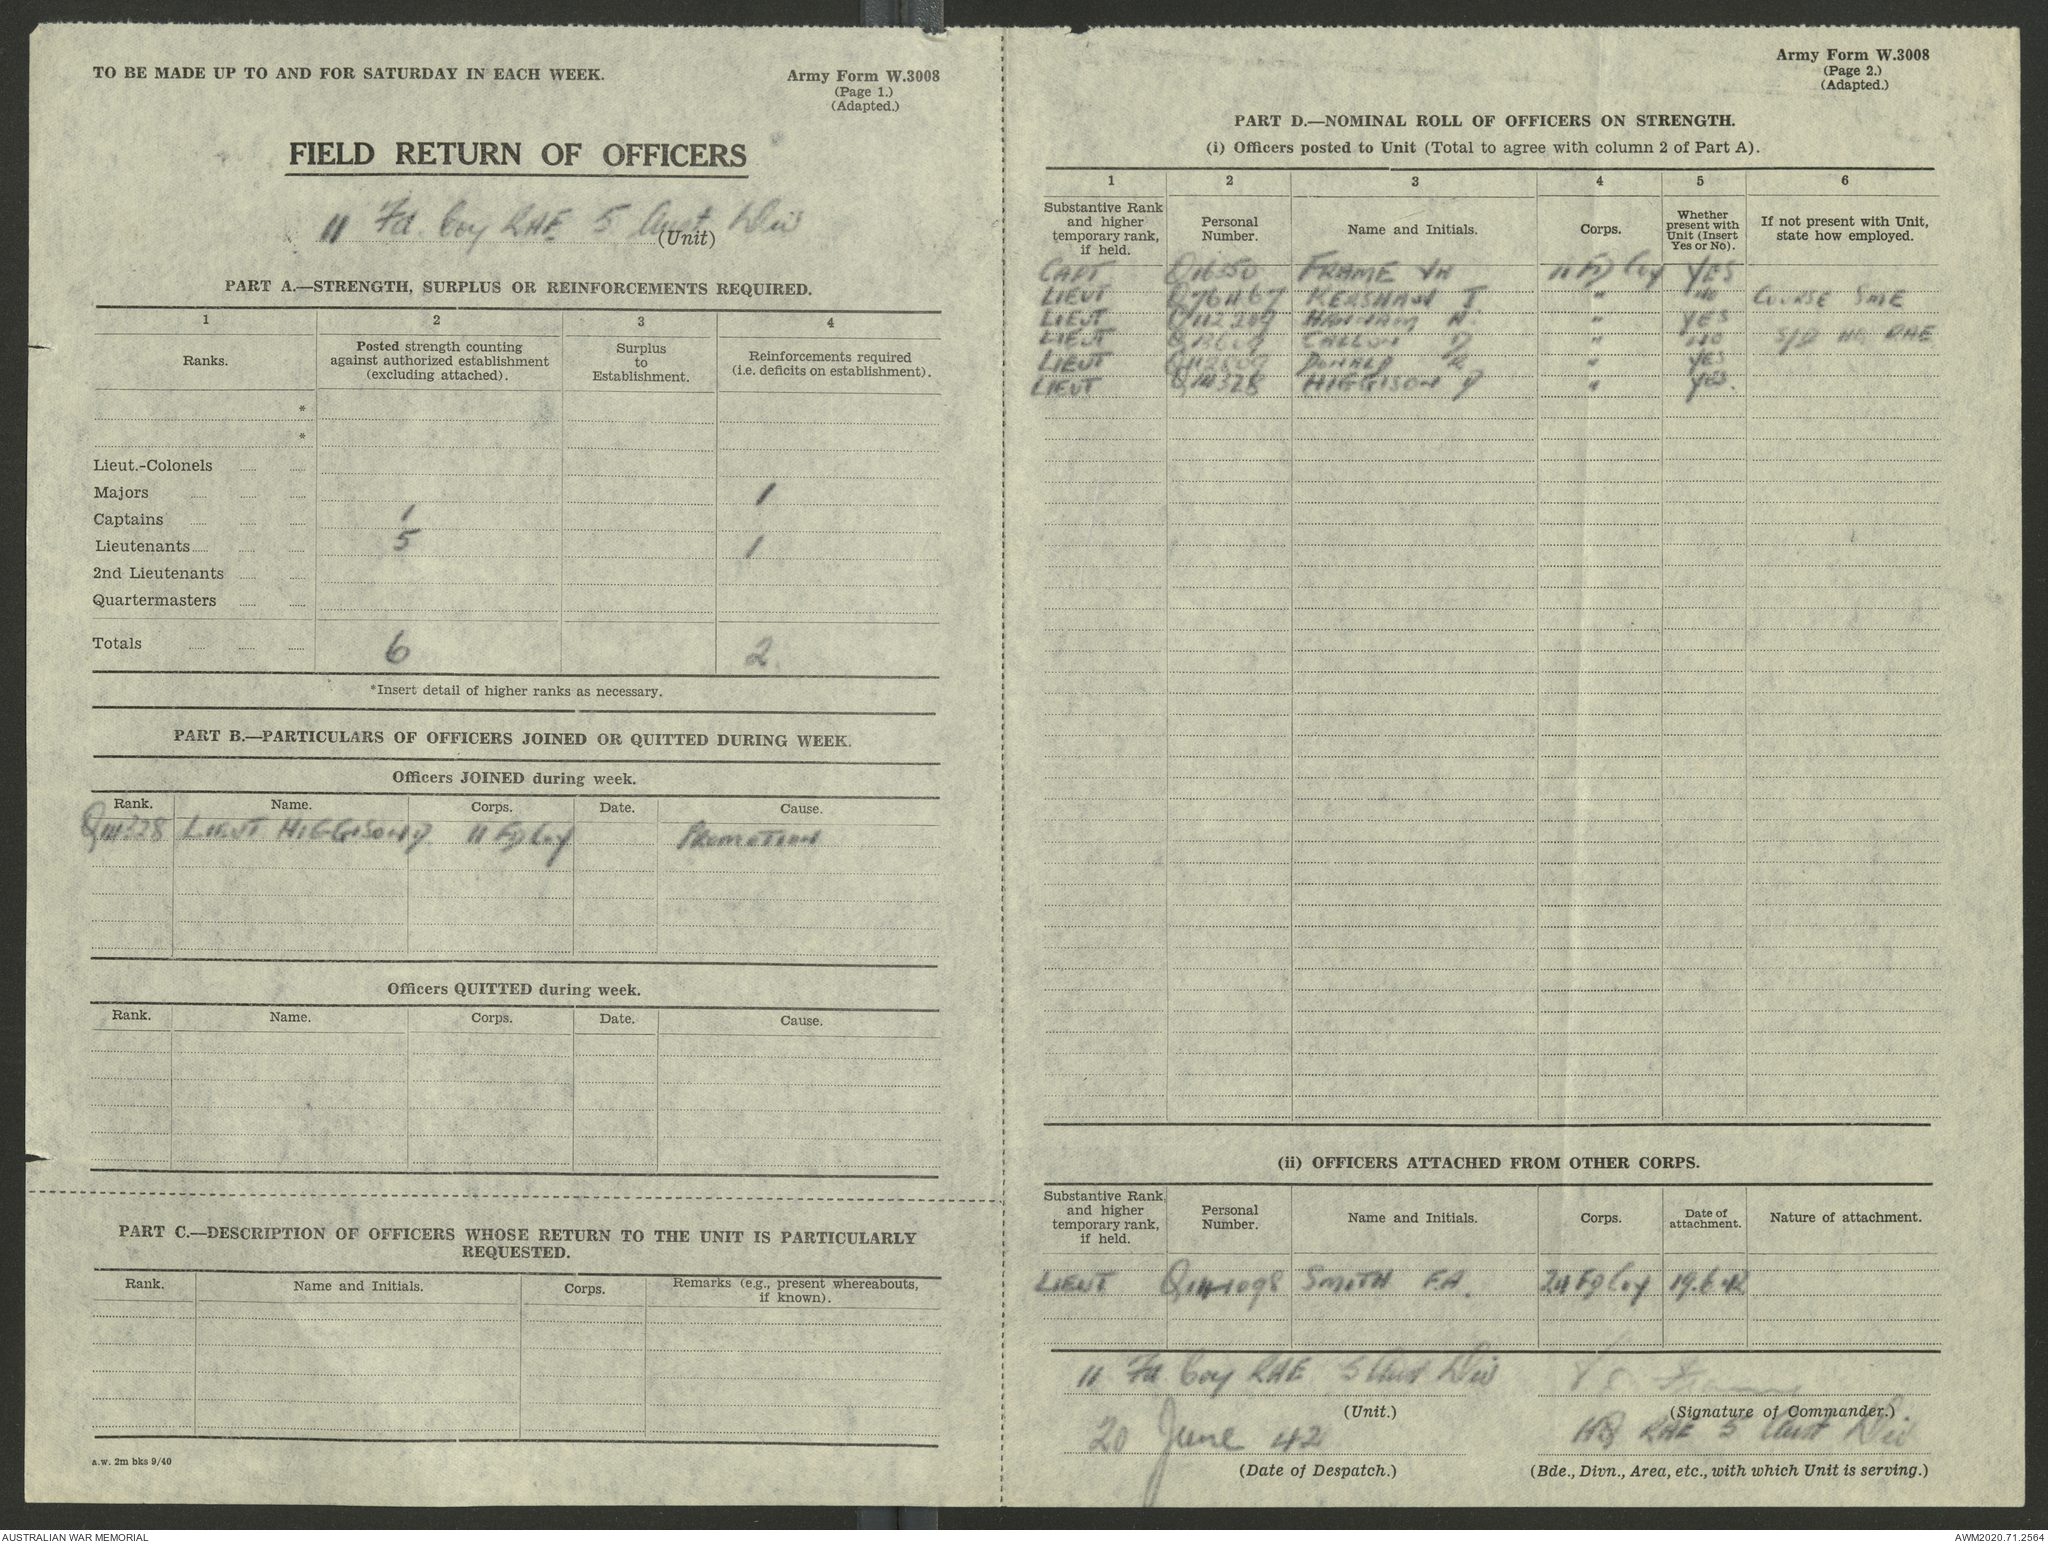 TO BE MADE UP TO AND FOR SATURDAY IN EACH WEEK.
Army Form W.3008
(Page 1.)
(Adapted.)
FIELD RETURN OF OFFICERS
11 Fd. Coy RAE 5 Aust Div
(Unit)
PART A.—STRENGTH, SURPLUS OR REINFORCEMENTS REQUIRED.
1 2 3 4
Ranks. Posted strength counting against authorized establishment (excluding attached). Surplus to Establishment. Reinforcements required (i.e. deficits on establishment).
*
*
Lieut.-Colonels
Majors 1
Captains 1
Lieutenants 5 1
2nd Lieutenants
Quartermasters
Totals 6 2
*Insert detail of higher ranks as necessary.
PART B.—PARTICULARS OF OFFICERS JOINED OR QUITTED DURING WEEK.
Officers JOINED during week.
Rank. Name. Corps. Date. Cause.
Q111328 LIEUT HIGGISON D 11 FD Coy PROMOTION
Officers QUITTED during week.
Rank. Name. Corps. Date. Cause.
PART C.—DESCRIPTION OF OFFICERS WHOSE RETURN TO THE UNIT IS PARTICULARLY
REQUESTED.
Rank. Name and Initials. Corps. Remarks (e.g., present whereabouts, if known).
a.w. 2m bks 9/40
Army Form W.3008
(Page 2.)
(Adapted.)
PART D.—NOMINAL ROLL OF OFFICERS ON STRENGTH.
(i) Officers posted to Unit (Total to agree with column 2 of Part A).
1 2 3 4 5 6
Substantive Rank and higher temporary rank, if held. Personal Number. Name and Initials. Corps. Whether present with Unit (Insert Yes or No). If not present with Unit, state how employed.
CAPT Q16550 FRAME 11 FD Coy YES
LIEUT Q76467 KERSHAW J. " NO COURSE SME
LIEUT " YES
LIEUT CALLOW D " NO S/D HQ RAE
LIEUT DONALD R " YES
LIEUT Q111328 HIGGISON D " YES.
(ii) OFFICERS ATTACHED FROM OTHER CORPS.
Substantive Rank and higher temporary rank, if held. Personal Number. Name and Initials. Corps. Date of attachment. Nature of attachment.
LIEUT SMITH F.A. 24 FD Coy 19.6.42
11 Fd. Coy RAE 5 Aust Div
(Unit.) (Signature of Commander.)
20 June 42 HQ RAE 5 Aust Div
(Date of Despatch.) (Bde., Divn., Area, etc., with which Unit is serving.)
AUSTRALIAN WAR MEMORIAL AWM2020.71.2564